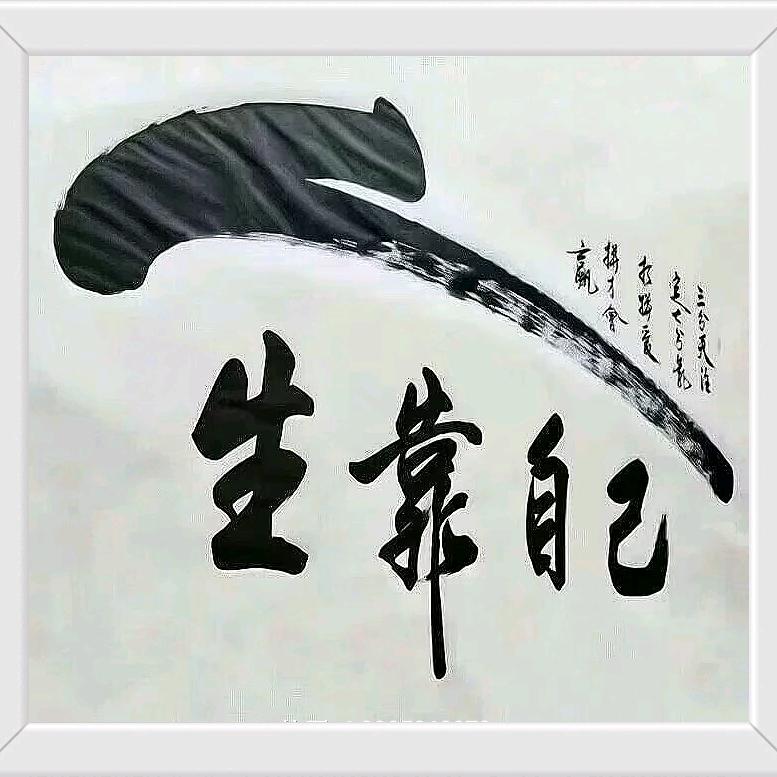 人生靠自己
三分天注
定七分靠
打拼爱
拼才會
赢